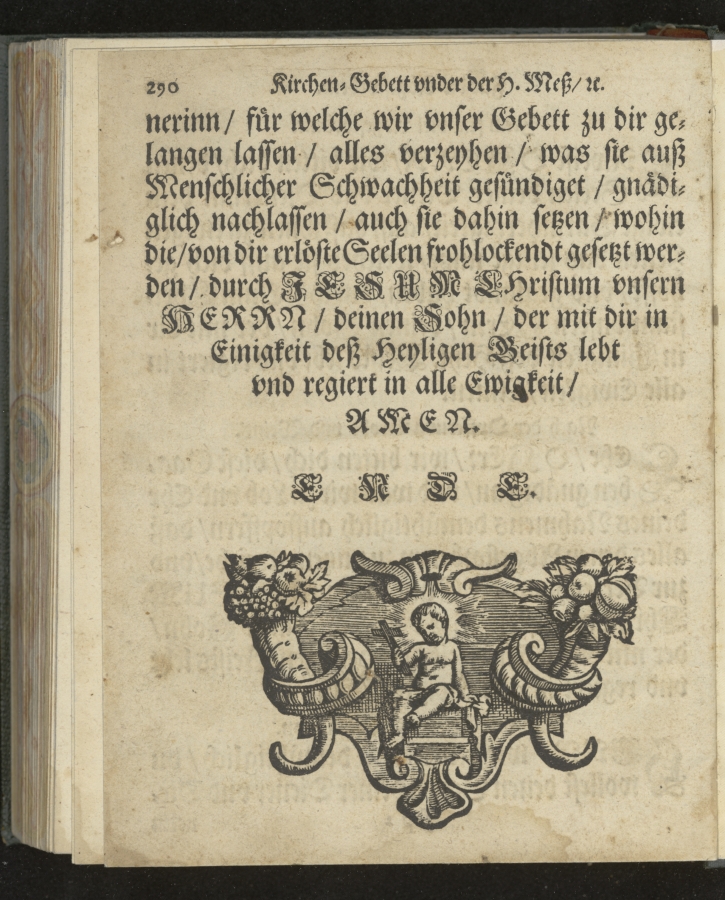 290 Kirchen-Gebett vnder der H. Meß/ ꝛc.
nerinn / für welche wir vnser Gebett zu dir ge-
langen lassen / alles verzeyhen / was sie auß
Menschlicher Schwachheit gesündiget / gnädi-
glich nachlassen / auch sie dahin setzen / wohin
die/von dir erlöste Seelen frohlockendt gesetzt wer-
den / durch JESUM CHristum vnsern
HERRN / deinen Sohn / der mit dir in
Einigkeit deß Heyligen Geists lebt
vnd regiert in alle Ewigkeit/
AMEN.
ENDE.